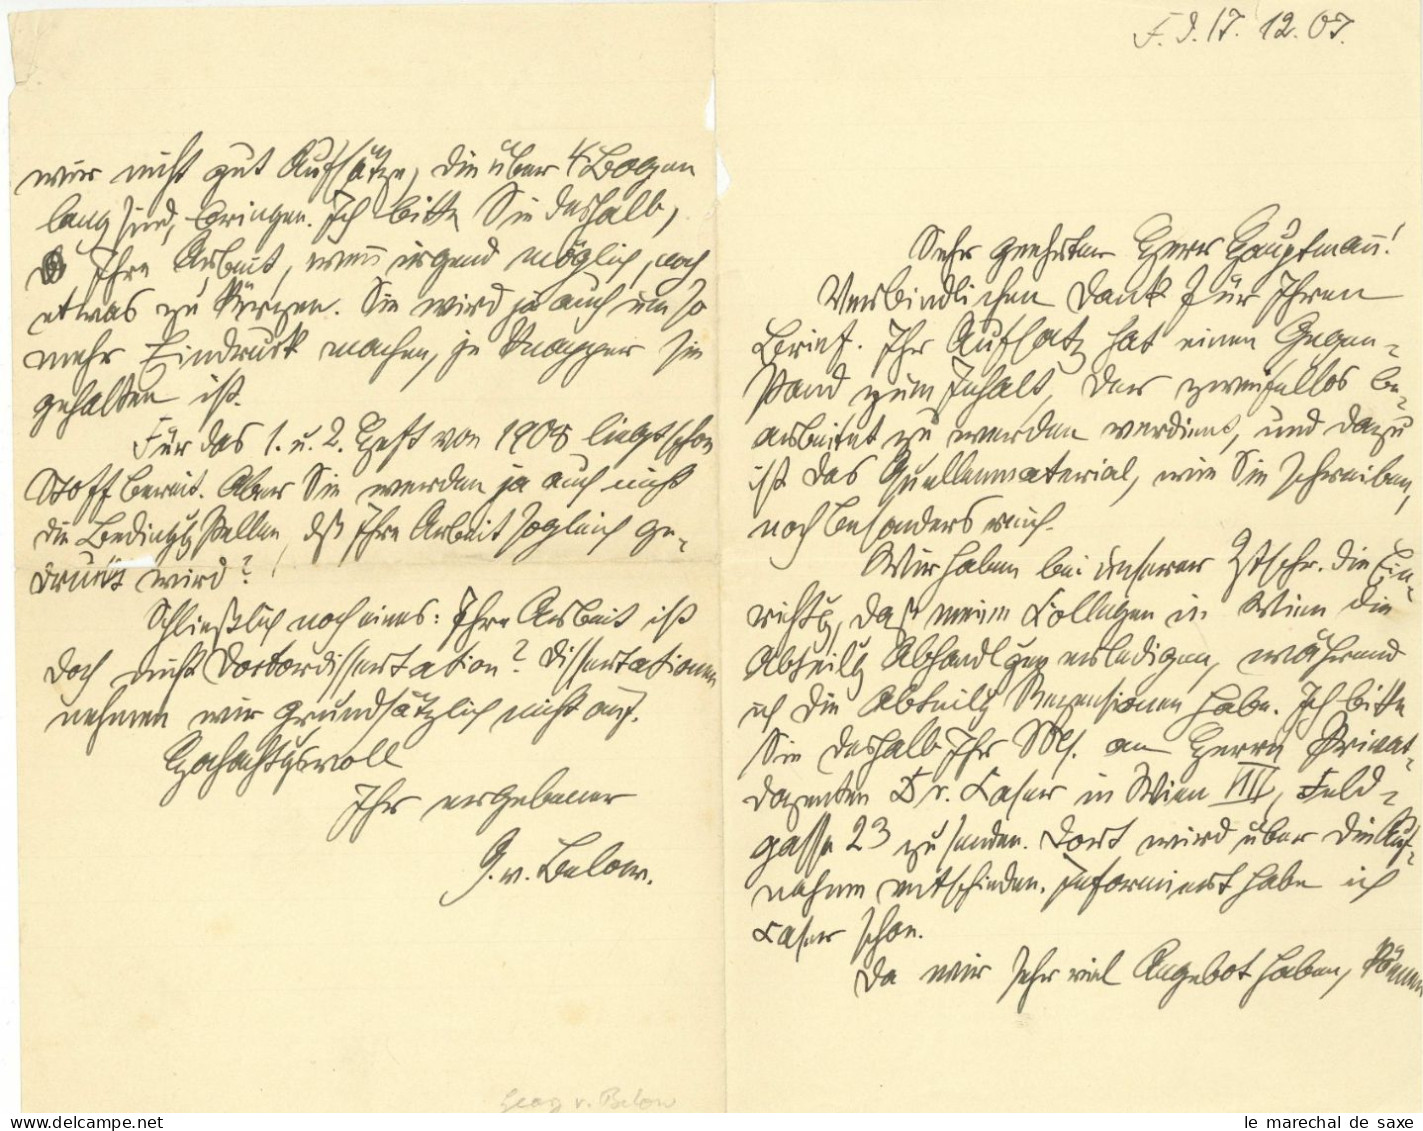 F. I. 17. 12. 07.
Sehr geehrter Herr Hauptmann!
Verbindlichen Dank für Ihren
Brief. Ihr Aufsatz hat einen Gegen-
stand zum Inhalt, der zweifellos be-
arbeitet zu werden verdient, und dazu
ist das Quellenmaterial, wie Sie schreiben,
noch besonders reich.
Wir haben bei unserer Ztschr. die Ein-
richtg, daß meine Collegen in Wien die
Abteilg Abhandlgen erledigen, während
ich die Abteilg Recensionen habe. Ich bitte
Sie deshalb Ihr Ms. an Herrn Privat-
dozenten Dr. Kaser in Wien VIII, Feld-
gasse 23 zu senden. Dort wird über die Auf-
nahme entschieden. Informiert habe ich
Kaser schon.
Da wir sehr viel Angebot haben, können
wir nicht gut Aufsätze, die über 4 Bogen
lang sind, bringen. Ich bitte Sie deshalb,
Ihre Arbeit, wenn irgend möglich, noch
etwas zu kürzen. Sie wird ja auch um so
mehr Eindruck machen, je knapper sie
gehalten ist.
Für das 1. u. 2. Heft von 1908 liegt schon
Stoff bereit. Aber Sie werden ja auch nicht
die Bedingg stellen, dß Ihre Arbeit sogleich ge-
druckt wird?
Schließlich noch eines: Ihre Arbeit ist
doch nicht Doctordissertation? Dissertationen
nehmen wir grundsätzlich nicht auf.
Hochachtgsvoll
Ihr ergebener
G. v. Below.
Georg v. Below
le marechal de saxe